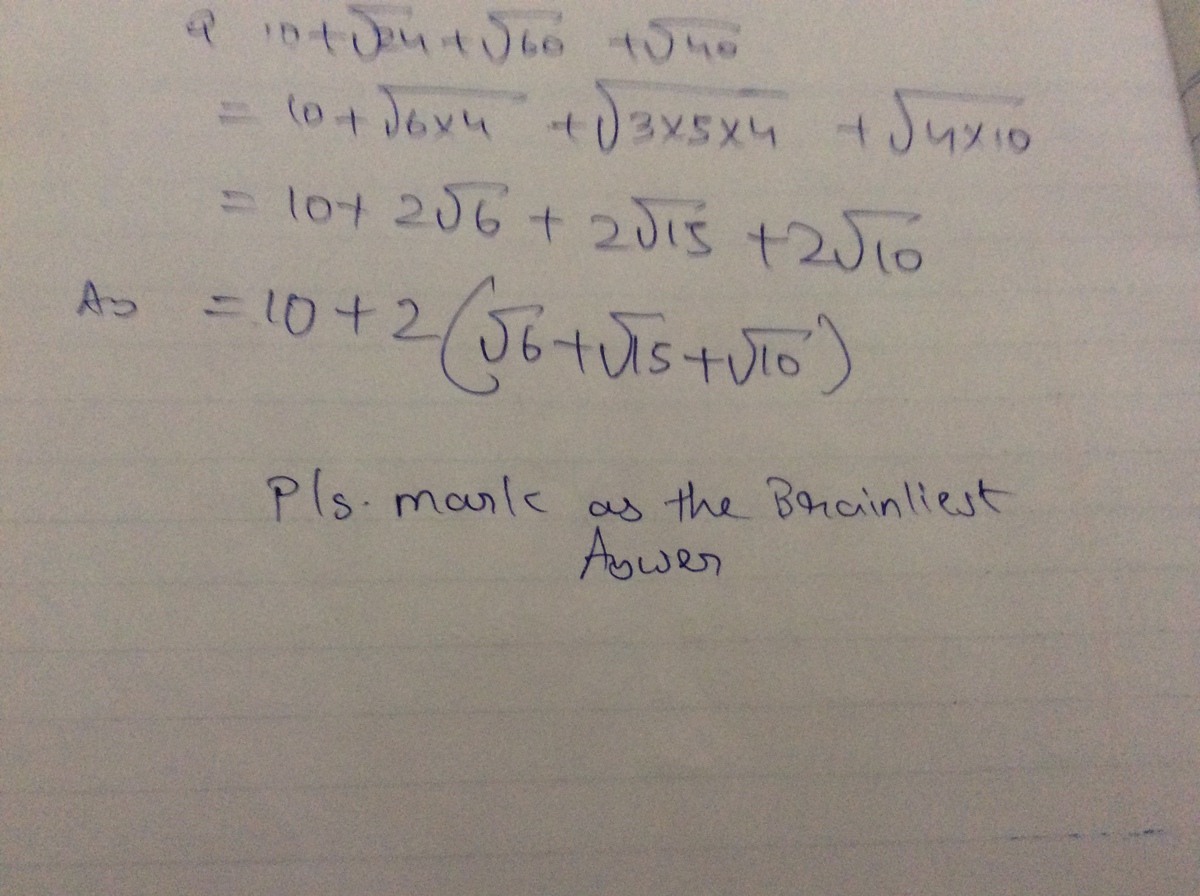 Q 10+√24+√60 +√40
= 10+√6×4 +√3×5×4 +√4×10
= 10+ 2√6 + 2√15 +2√10
As = 10 + 2(√6+√15+√10)
Pls. mark as the Brainliest
Aswer